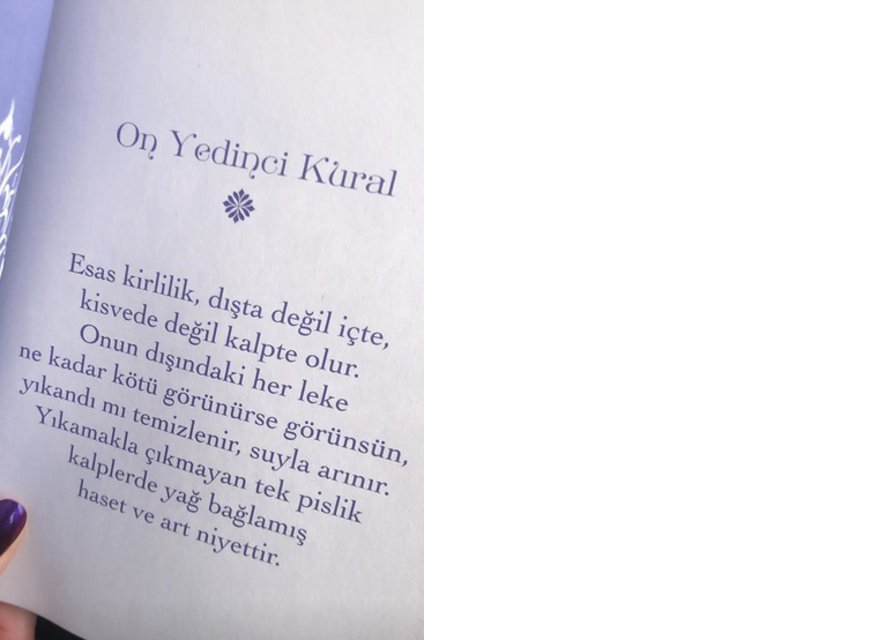 On Yedinci Kural
Esas kirlilik, dışta değil içte,
kisvede değil kalpte olur.
Onun dışındaki her leke
ne kadar kötü görünürse görünsün,
yıkandı mı temizlenir, suyla arınır.
Yıkamakla çıkmayan tek pislik
kalplerde yağ bağlamış
haset ve art niyettir.